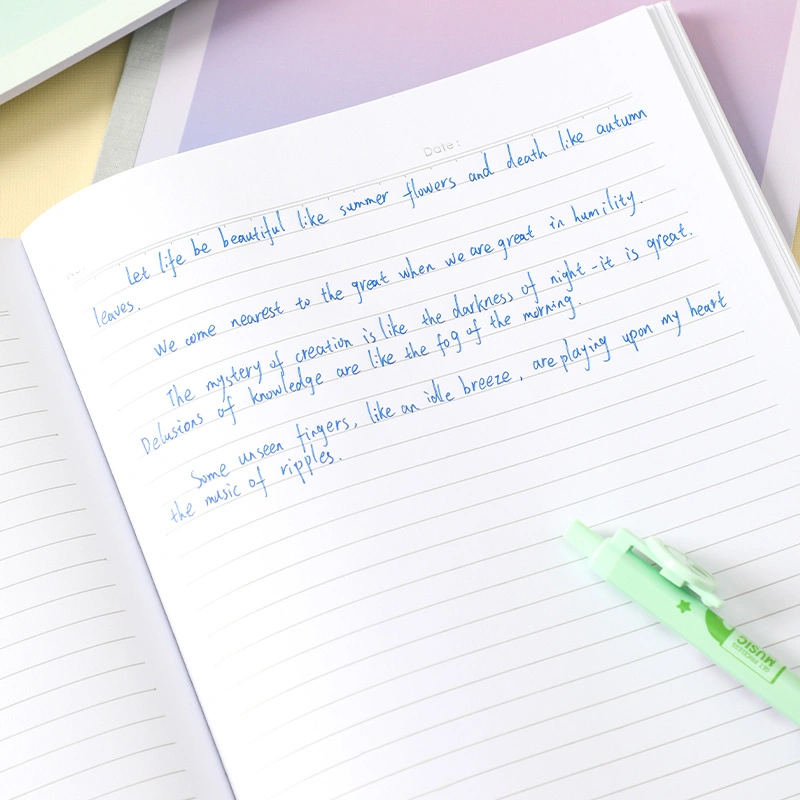 Date:
let life be beautiful like summer flowers and death like autumn
leaves.
We come nearest to the great when we are great in humility.
The mystery of creation is like the darkness of night-it is great.
Delusions of knowledge are like the fog of the morning.
Some unseen fingers, like an idle breeze, are playing upon my heart
the music of ripples.
MUSIC